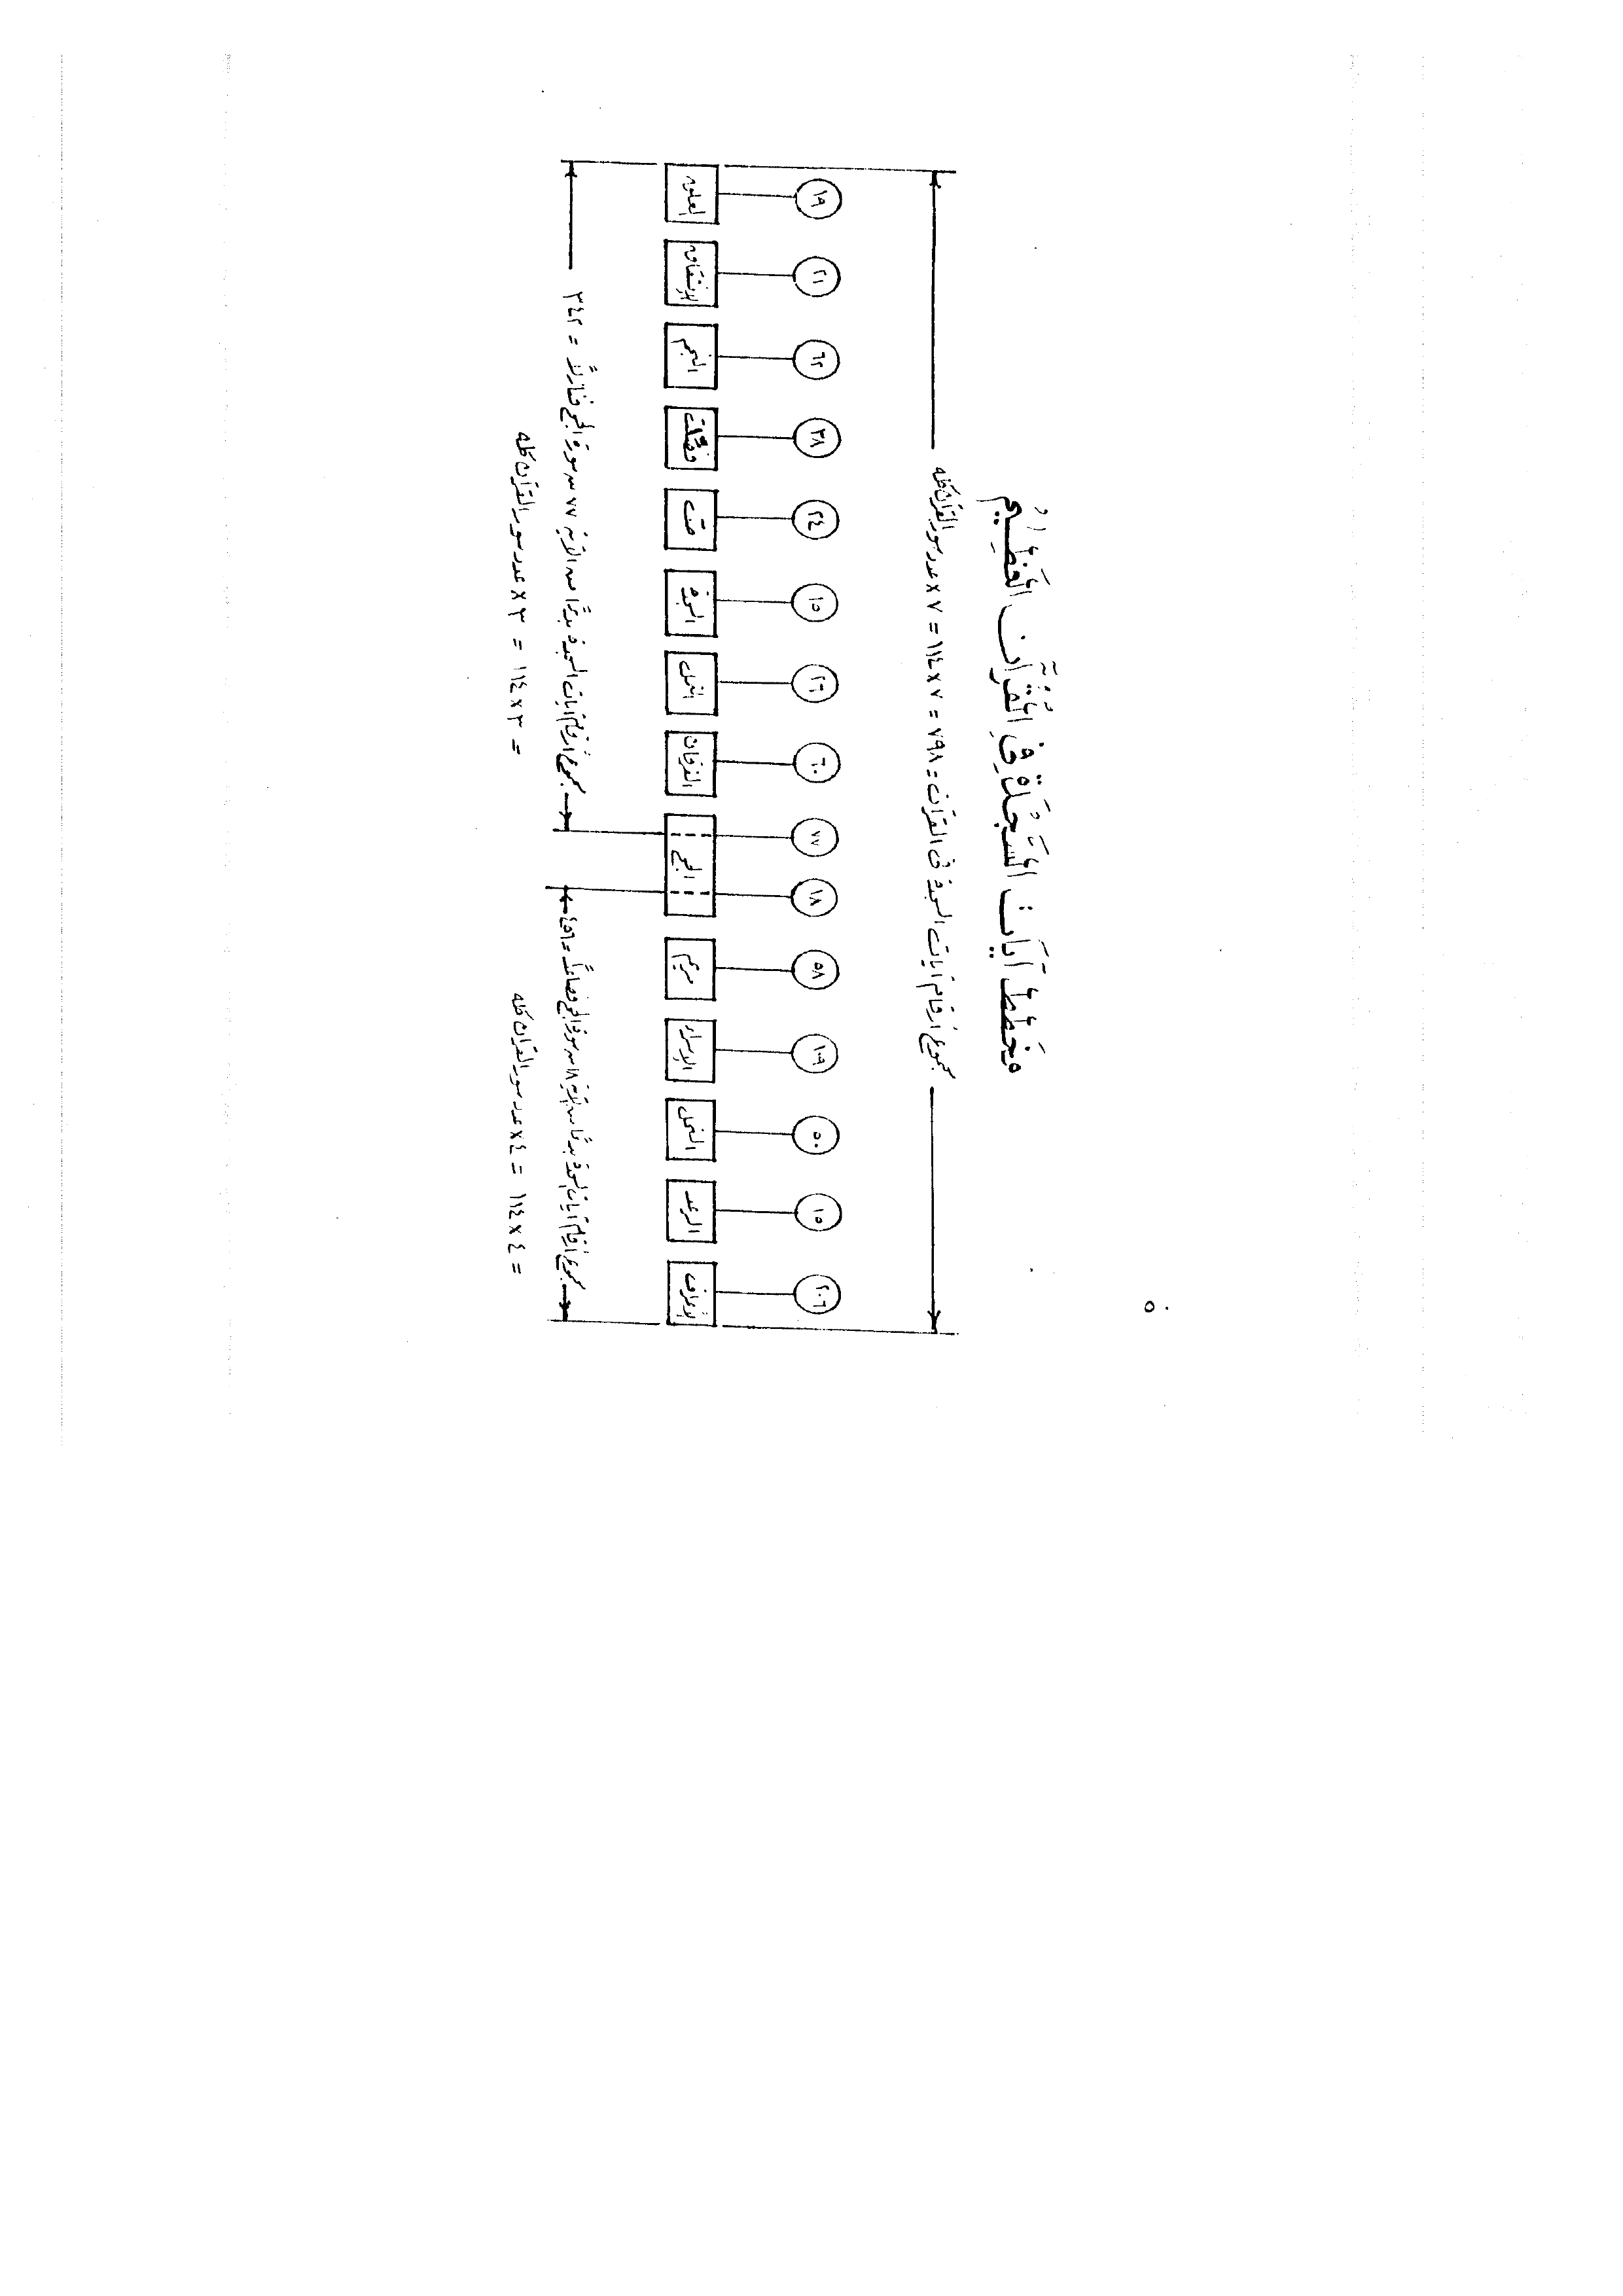 ٥٠
مُخَطط آيَات السَّجْدَة فِي القُرْآن العَظِيم
مجموع أرقام آيات السجدة فى القرآن = ٧٩٨ = ٧ × ١١٤ = ٧ × عدد سور القرآن كله
٢٠٦ ١٥ ٥٠ ١٠٩ ٥٨ ١٨ ٧٧ ٦٠ ٢٦ ١٥ ٢٤ ٣٨ ٦٢ ٢١ ١٩
الأعراف الرعد النحل الإسراء مريم الحج الفرقان النمل السجدة ص فصلت النجم الإنشقاق العلق
مجموع أرقام آيات السجدة بدءًا من الآية ١٨ من سورة الحج فصاعدًا = ٤٥٦
مجموع أرقام آيات السجدة بدءًا من الآية ٧٧ من سورة الحج فنازلاً = ٣٤٢
= ٤ × ١١٤ = ٤ × عدد سور القرآن كله
= ٣ × ١١٤ = ٣ × عدد سور القرآن كله